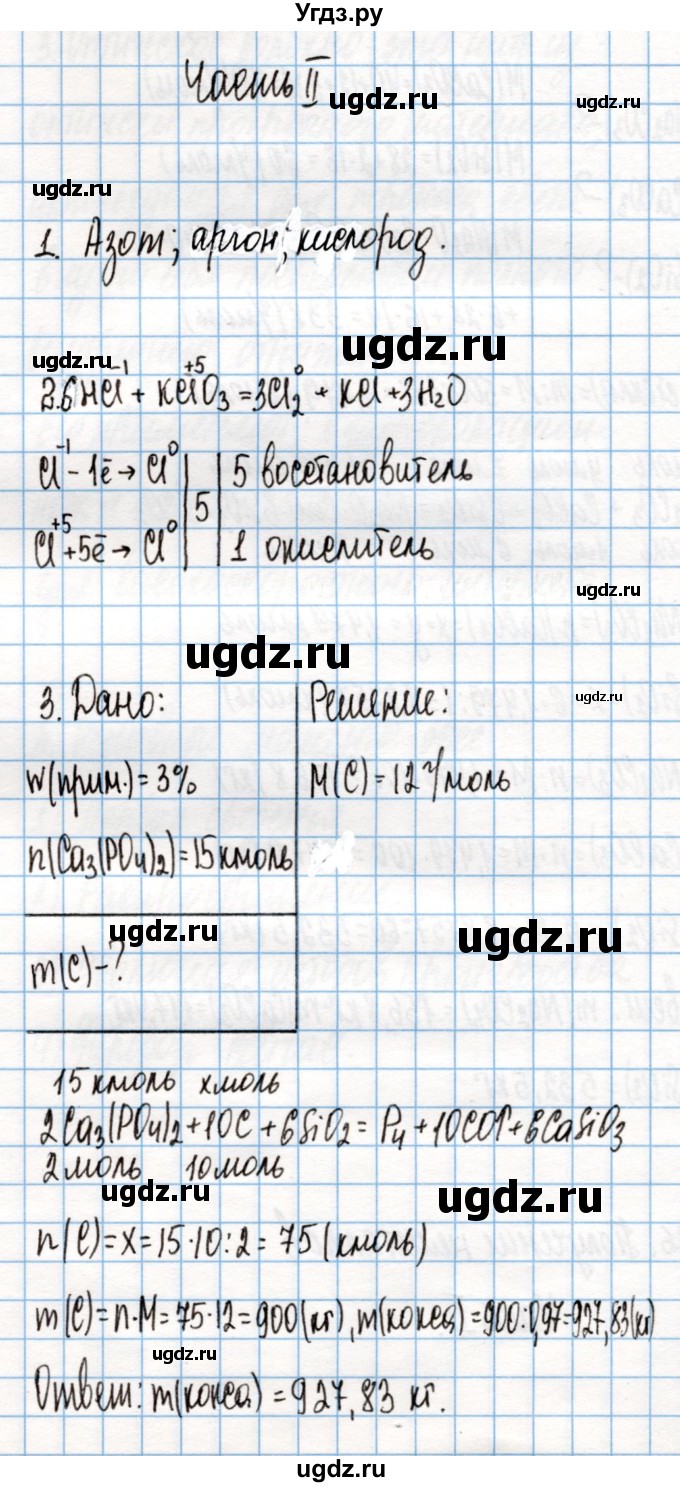 Угдз.ру
Часть II
ugdz.ru
ugdz.ru
ugdz.ru
1. Азот; аргон; кислород.
ugdz.ru
ugdz.ru
2. 6HCl⁻¹ + KCl⁺⁵O₃ = 3Cl₂⁰ + KCl + 3H₂O
Cl⁻¹ - 1ē → Cl⁰ | | 5 восстановитель
| 5 |
Cl⁺⁵ + 5ē → Cl⁰ | | 1 окислитель
ugdz.ru
ugdz.ru
ugdz.ru
ugdz.ru
3. Дано: Решение:
w(прим.) = 3% M(C) = 12 г/моль
n(Ca₃(PO₄)₂) = 15 кмоль
ugdz.ru
ugdz.ru
m(C) - ?
15 кмоль xмоль
2Ca₃(PO₄)₂ + 10C + 6SiO₂ = P₄ + 10CO↑ + 6CaSiO₃
2 моль 10 моль
ugdz.ru
ugdz.ru
n(C) = x = 15·10:2 = 75 (кмоль)
m(C) = n·M = 75·12 = 900 (кг), m(кокса) = 900:0,97 = 927,83 (кг)
ugdz.ru
Ответ: m(кокса) = 927,83 кг.
ugdz.ru